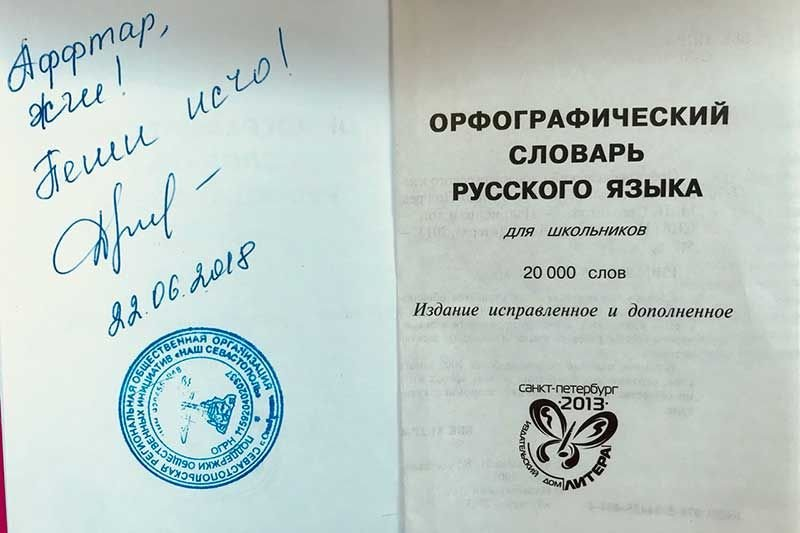 Аффтар,
жги!
Пеши исчо!
22.06.2018
СЕВАСТОПОЛЬСКАЯ РЕГИОНАЛЬНАЯ ОБЩЕСТВЕННАЯ ОРГАНИЗАЦИЯ
ПОДДЕРЖКИ ОБЩЕСТВЕННЫХ ИНИЦИАТИВ «НАШ СЕВАСТОПОЛЬ»
ОГРН
ОРФОГРАФИЧЕСКИЙ
СЛОВАРЬ
РУССКОГО ЯЗЫКА
для школьников
20 000 слов
Издание исправленное и дополненное
САНКТ-ПЕТЕРБУРГ
·2013·
ИЗДАТЕЛЬСКИЙ ДОМ
ЛИТЕРА